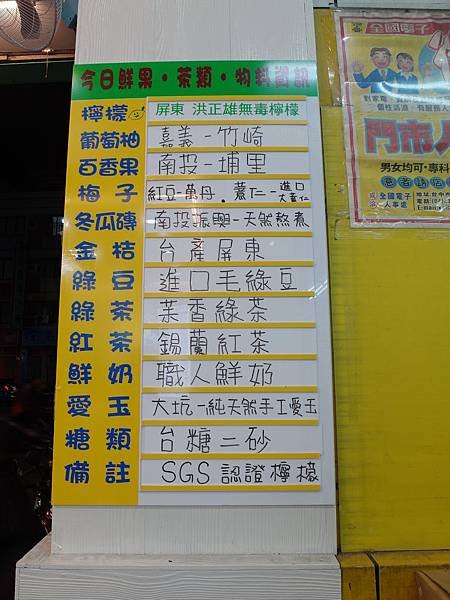 今日鮮果・茶類・物料資訊
檸檬 屏東 洪正雄無毒檸檬
葡萄柚 嘉義-竹崎
百香果 南投-埔里
梅子 紅豆-萬丹・薏仁-進口大薏仁
冬瓜磚 南投振興-天然熬煮
金桔 台產屏東
綠豆 進口毛綠豆
綠茶 茉香綠茶
紅茶 錫蘭紅茶
鮮奶 職人鮮奶
愛玉 大坑-純天然手工愛玉
糖類 台糖二砂
備註 SGS 認證檸檬
全國電子
門市人
男女均可・專科